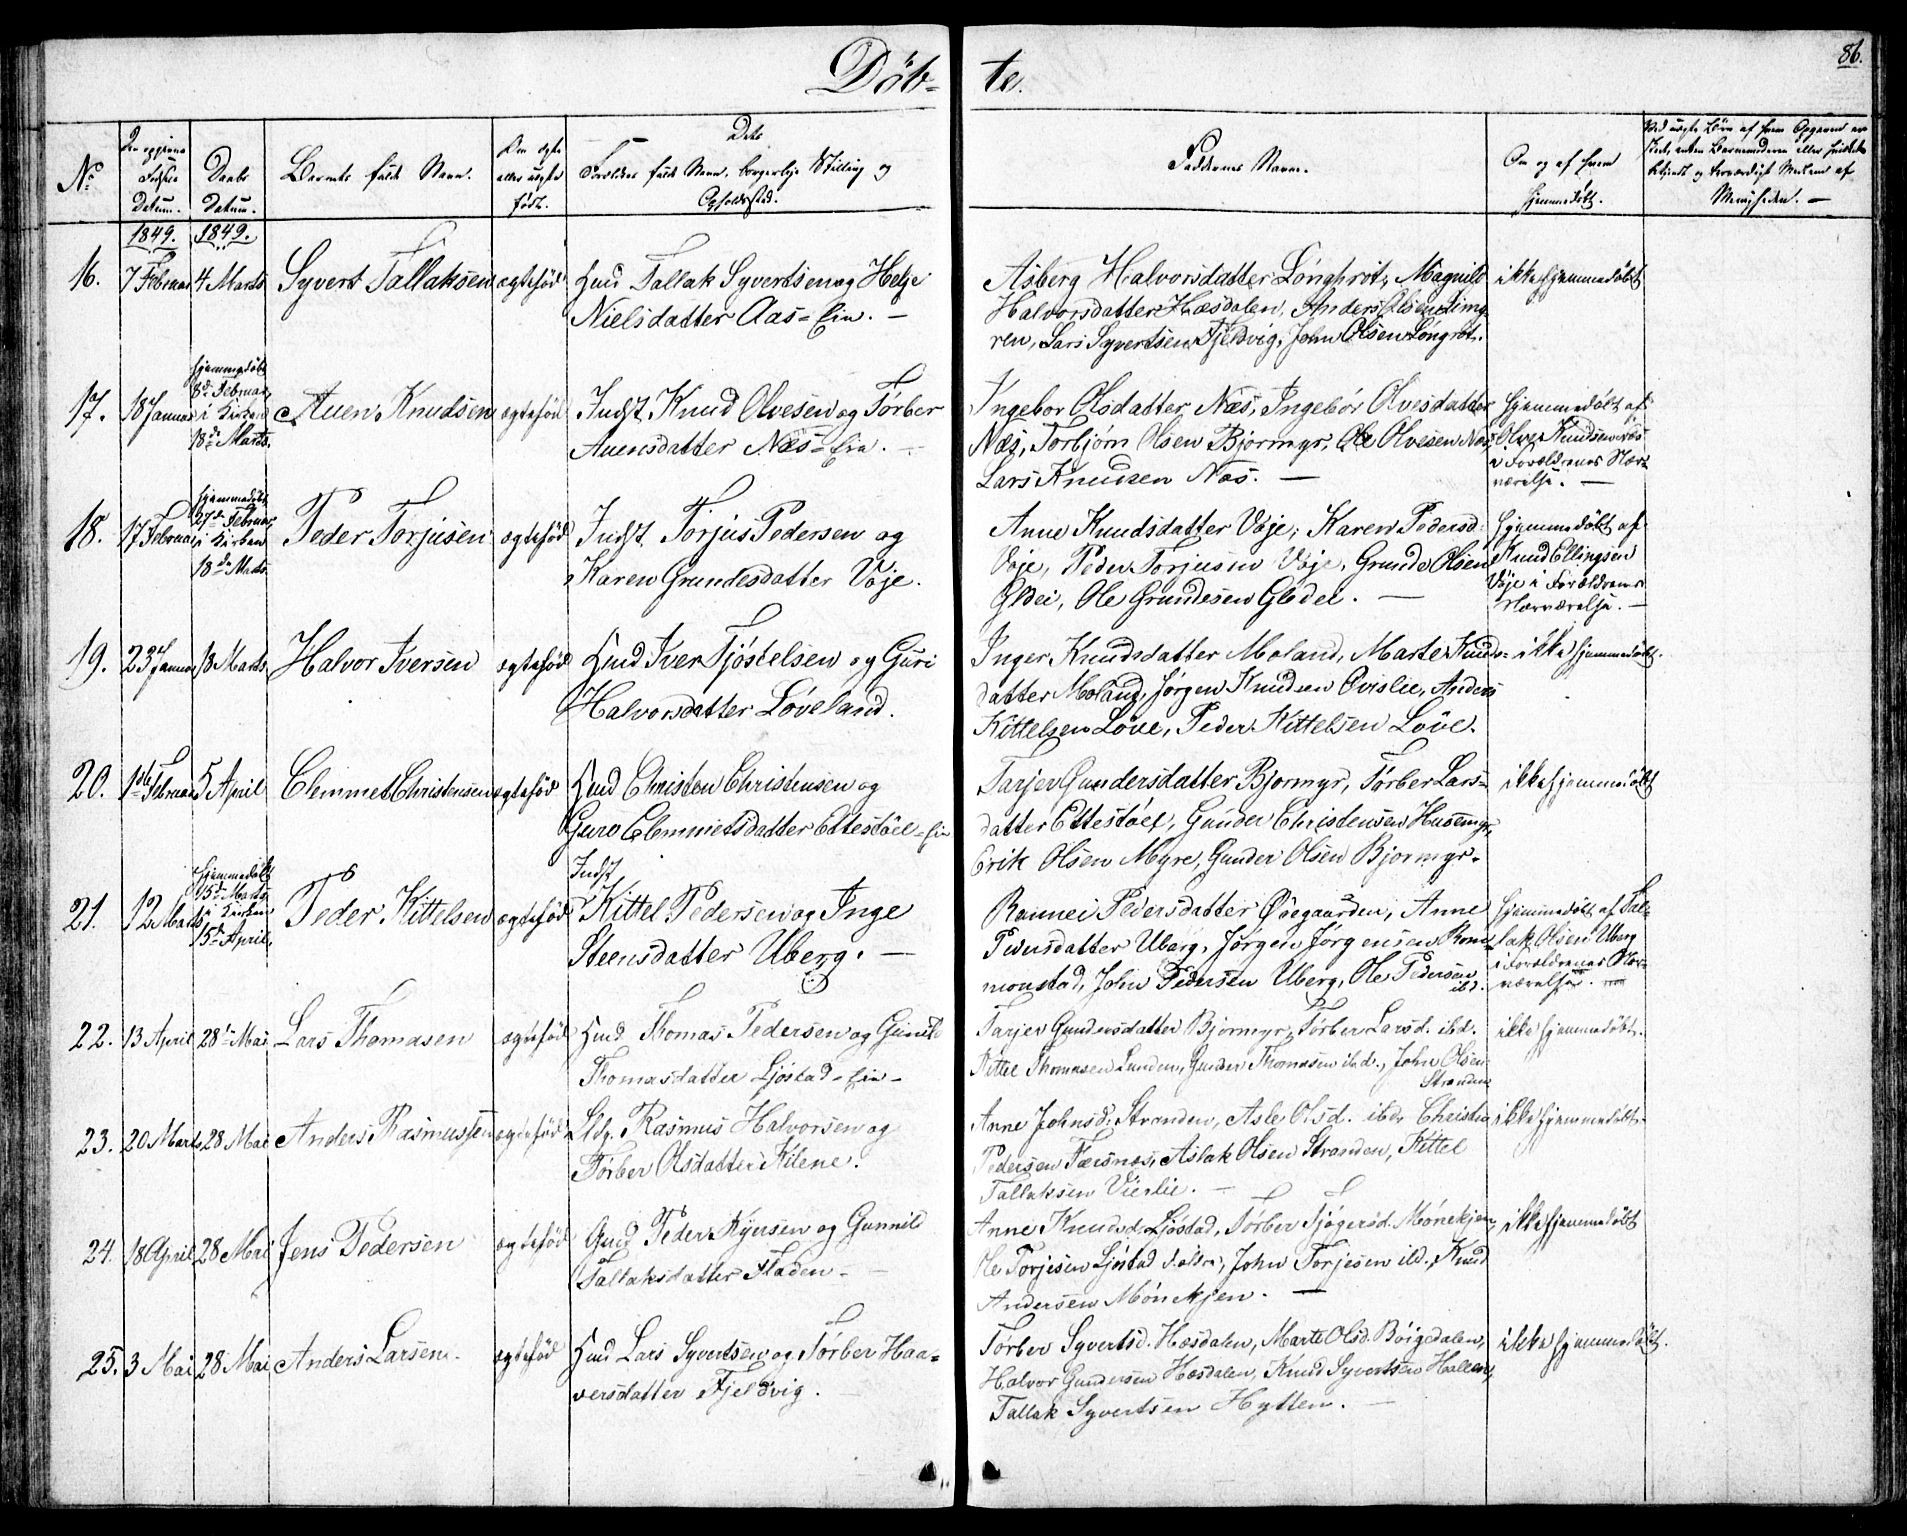 Døb-
te.
86.
No
Den opgivne Fødsels Datum.
Daabs Datum.
Barnets fulde Navn.
Om ægte eller uægte født.
Dets Forældres fulde Navn, borgerlige Stilling og Opholdssted.
Faddernes Navne.
Om og af hvem hjemmedøbt.
Menigheden. —
1849.
1849.
16.
7 Februar
4 Marts
Syvert Tallaksen
ægtefød
Hmd Tallak Syvertsen og Helje
Nielsdatter Aas - Eie. —
Asberg Halvorsdatter Løngrot, Magnild
Halvorsdatter Hæsdalen, Anders Olsen
ren, Lars Syvertsen Fjeldvig, John Olsen Løngrot.
ikke hjemmedøbt
17.
18 Januar
hjemmedøbt
8de Februar,
i Kirken
18de Marts.
Auen Knudsen
ægtefød
Indst. Knud Olvesen og Tørber
Auensdatter Næs - Eie. —
Ingebor Olsdatter Næs, Ingebør Olvesdatter
Næs, Torbjørn Olsen Bjormyr, Ole Olvesen Næs,
Lars Knudsen Næs. —
Hjemmedøbt af
Olve Knudsen Næs
i Forældrenes Nær-
værelse. —
18.
17 Februar
hjemmedøbt
27de Februar,
i Kirken
18de Marts.
Peder Torjusen
ægtefød
Indst. Torjus Pedersen og
Karen Grundesdatter Vøje.
Anne Knudsdatter Vøje, Karen Pedersd.
Vøje, Peder Torjusen Vøje, Grunde Olsen
Gldei, Ole Grundesen Gldei. —
Hjemmedøbt af
Knud Ellingsen
Vøje i Forældrenes
Nærværelse. —
19.
23 Januar
18 Marts
Halvor Iversen
ægtefød
Hmd Iver Tjøstelsen og Guri
Halvorsdatter Løveland.
Inger Knudsdatter Moland, Marte Knuds-
datter Moland, Jørgen Knudsen Qvislie, Anders
Kittelsen Løve, Peder Kittelsen Løve.
ikke hjemmedøbt.
20.
1ste Februar
5 April
Clemmet Christensen
ægtefød
Hmd Christen Christensen og
Guro Clemmetsdatter Ettestøel - Eie
Tarjer Gundersdatter Bjormyr, Tørber Lars-
datter Ettestøel, Gunder Christensen Husemyr,
Erik Olsen Myre, Gunder Olsen Bjormyr.
ikke hjemmedøbt
21.
12 Marts
hjemmedøbt
15de Marts
i Kirken
15de April,
Peder Kittelsen
ægtefød
Indst
Kittel Pedersen og Inge
Steensdatter Uberg. —
Rannei Pedersdatter Øøegaarden, Anne
Pedersdatter Uberg, Jørgen Jørgensen Rom-
monstad, John Pedersen Uberg, Ole Pedersen
ibd.
Hjemmedøbt af Tal-
lak Olsen Uberg
i Forældrenes Nær-
værelse. —
22.
13 April
28de Mai
Lars Thomasen
ægtefød
Hmd Thomas Pedersen og Gunild
Thomasdatter Ljøstad - Eie -
Tarjer Gundersdatter Bjormyr, Tørber Larsd. ibd.
Kittel Thomasen Lunden, Gunder Thomasen ibd., John Olsen
Stranden
ikke hjemmedøbt.
23.
20 Marts
28 Mai
Anders Rasmussen
ægtefød
Rasmus Halvorsen og
Tørber Olsdatter Kilene.
Anne Johnsd. Stranden, Asle Olsd. ibd., Christen
Pedersen Færsnæs, Aslak Olsen Stranden, Kittel
Tallaksen Vierlie. —
ikke hjemmedøbt.
24.
18 April
28 Mai
Jens Pedersen
ægtefød
Peder Kyersen og Gunnild
Tallaksdatter Fladen -
Anne Knudsd. Ljøstad, Tørber Tjøgersd. Mønekjen,
Ole Torjesen Ljøstad d. ældre, John Torjesen ibd., Knud
Andersen Mønekjen. —
ikke hjemmedøbt
25.
3 Mai
28 Mai
Anders Larsen.
ægtefød
Hmd Lars Syvertsen og Tørber Haa-
versdatter Fjeldvig.
Tørber Syvertsd. Hæsdalen, Marte Olsd. Bøigedalen,
Halvor Gundersen Hæsdalen, Knud Syvertsen Hallen,
Tallak Syvertsen Hytten. —
ikke hjemmedøbt.